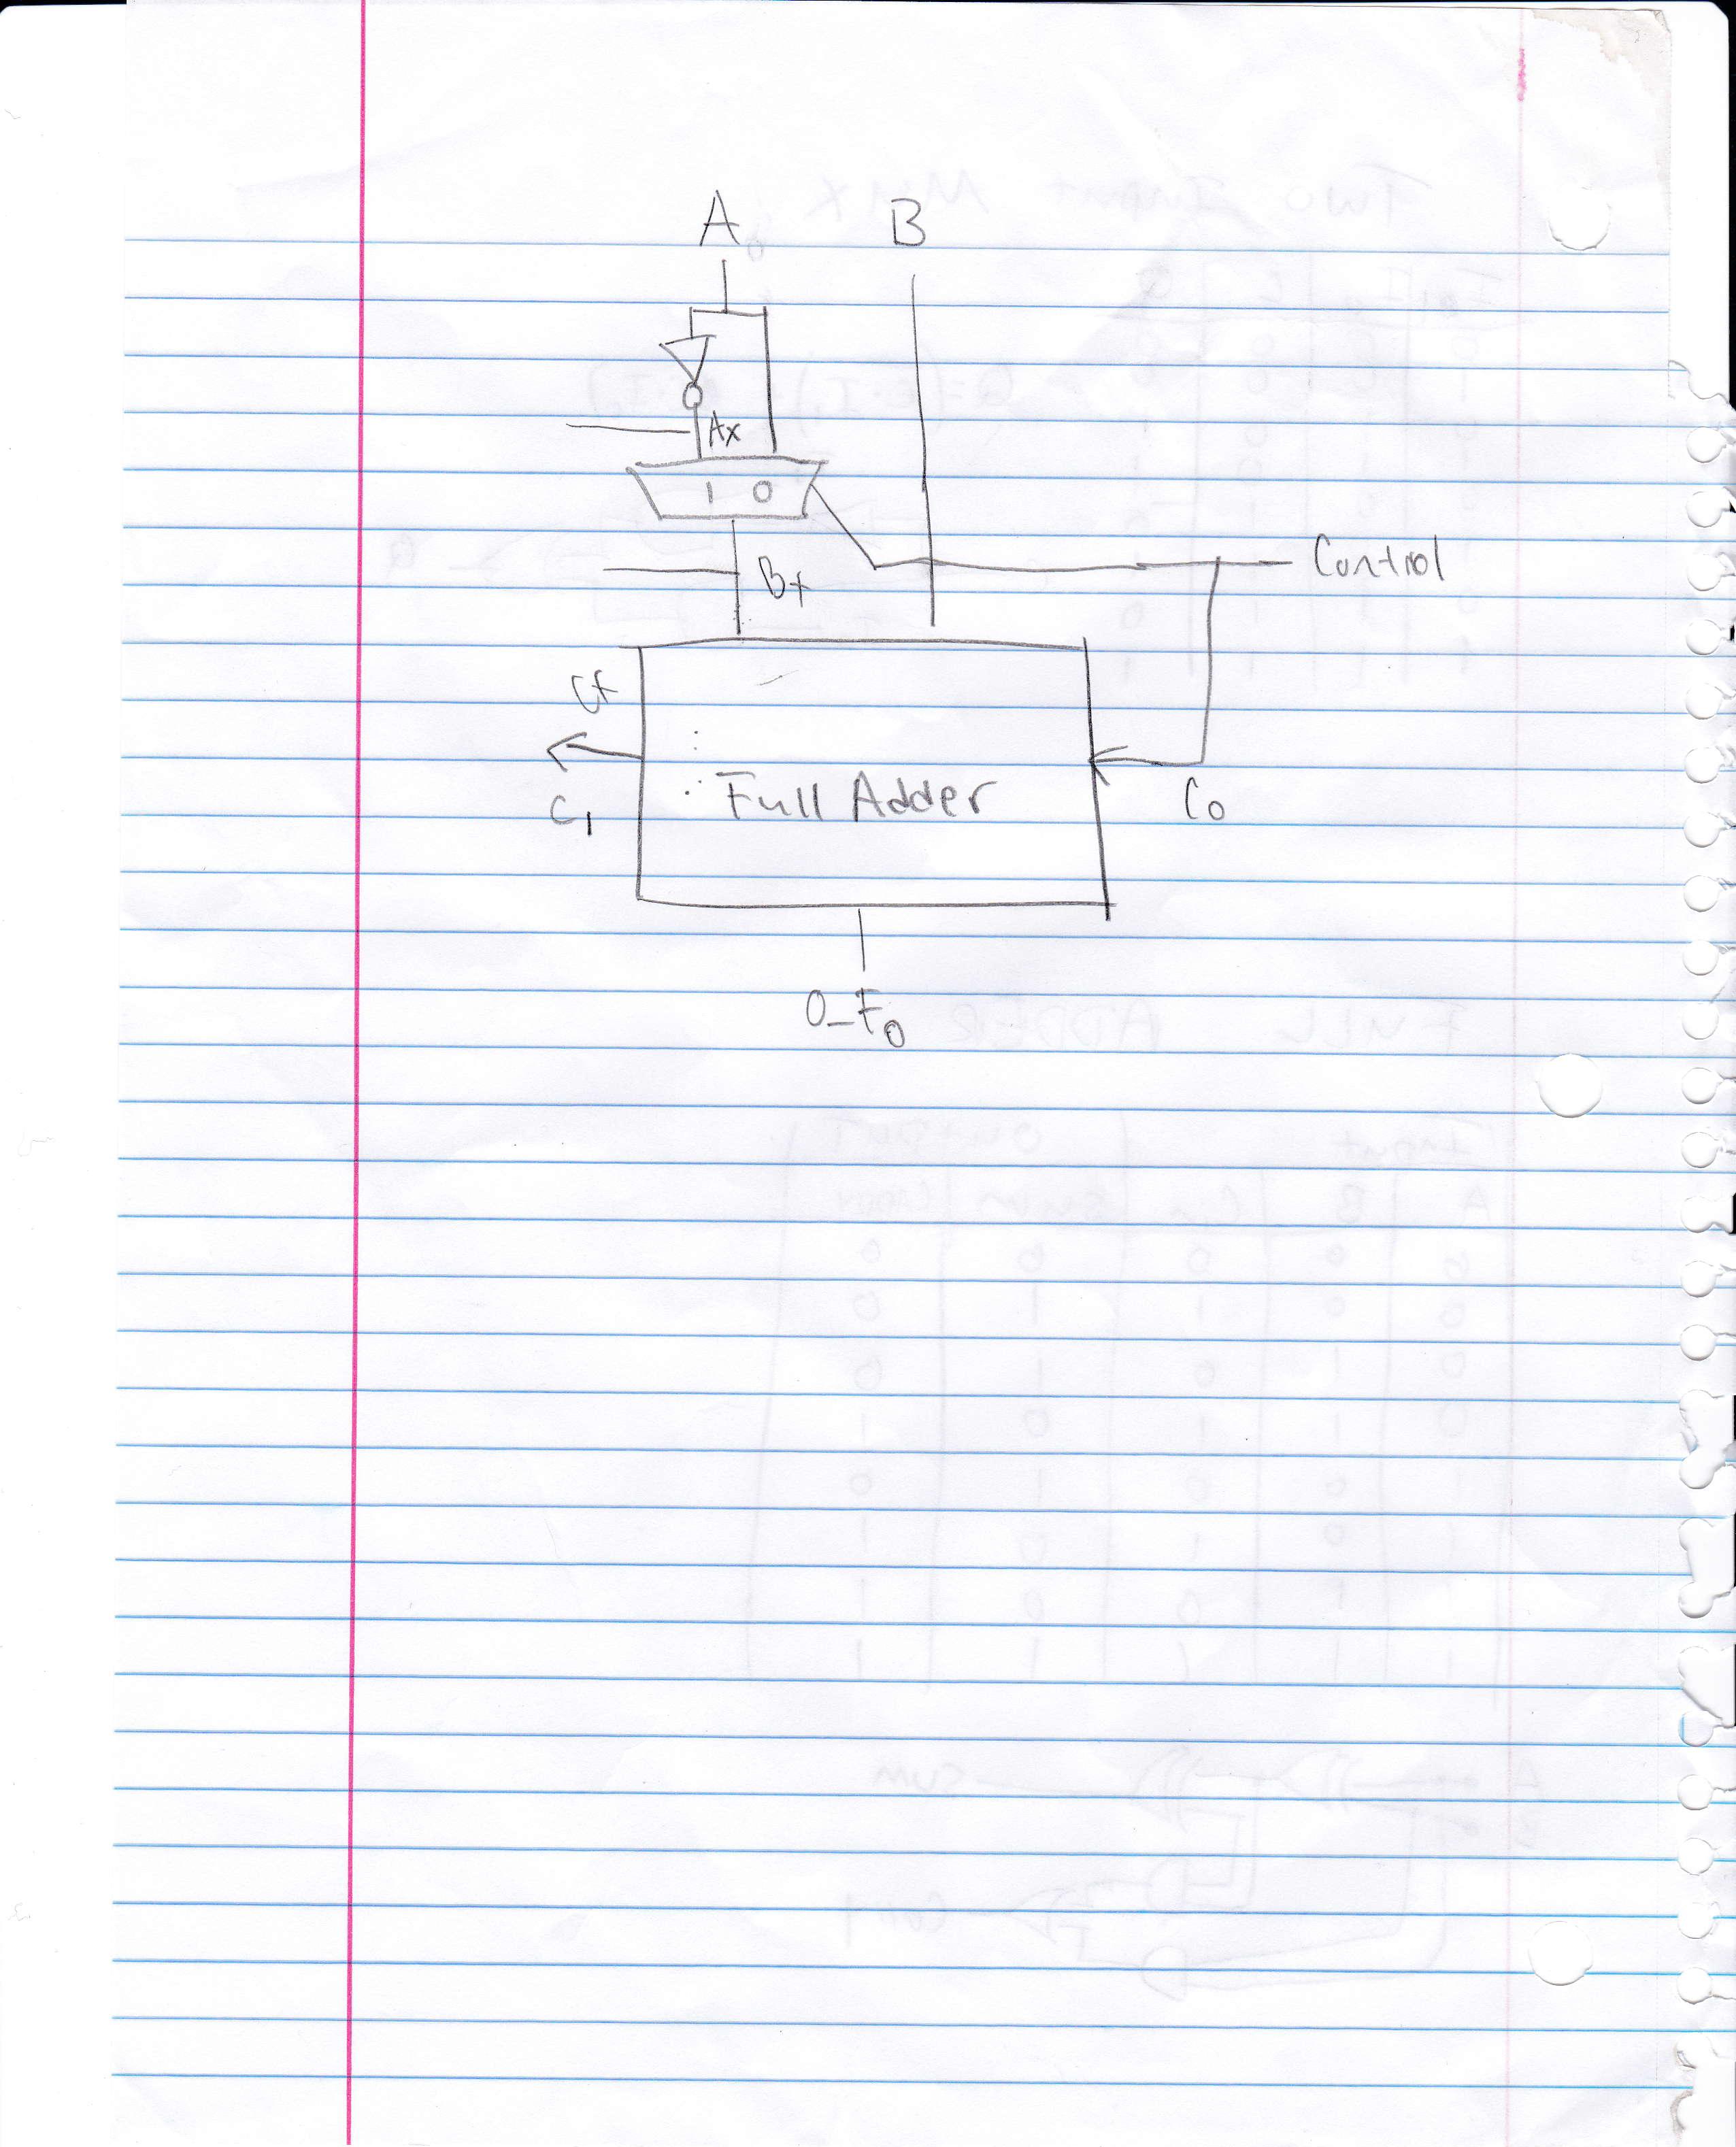 A₀ B
Ax
1 0
Control
Bx
Cx
Full Adder
C₁ C₀
O_F₀